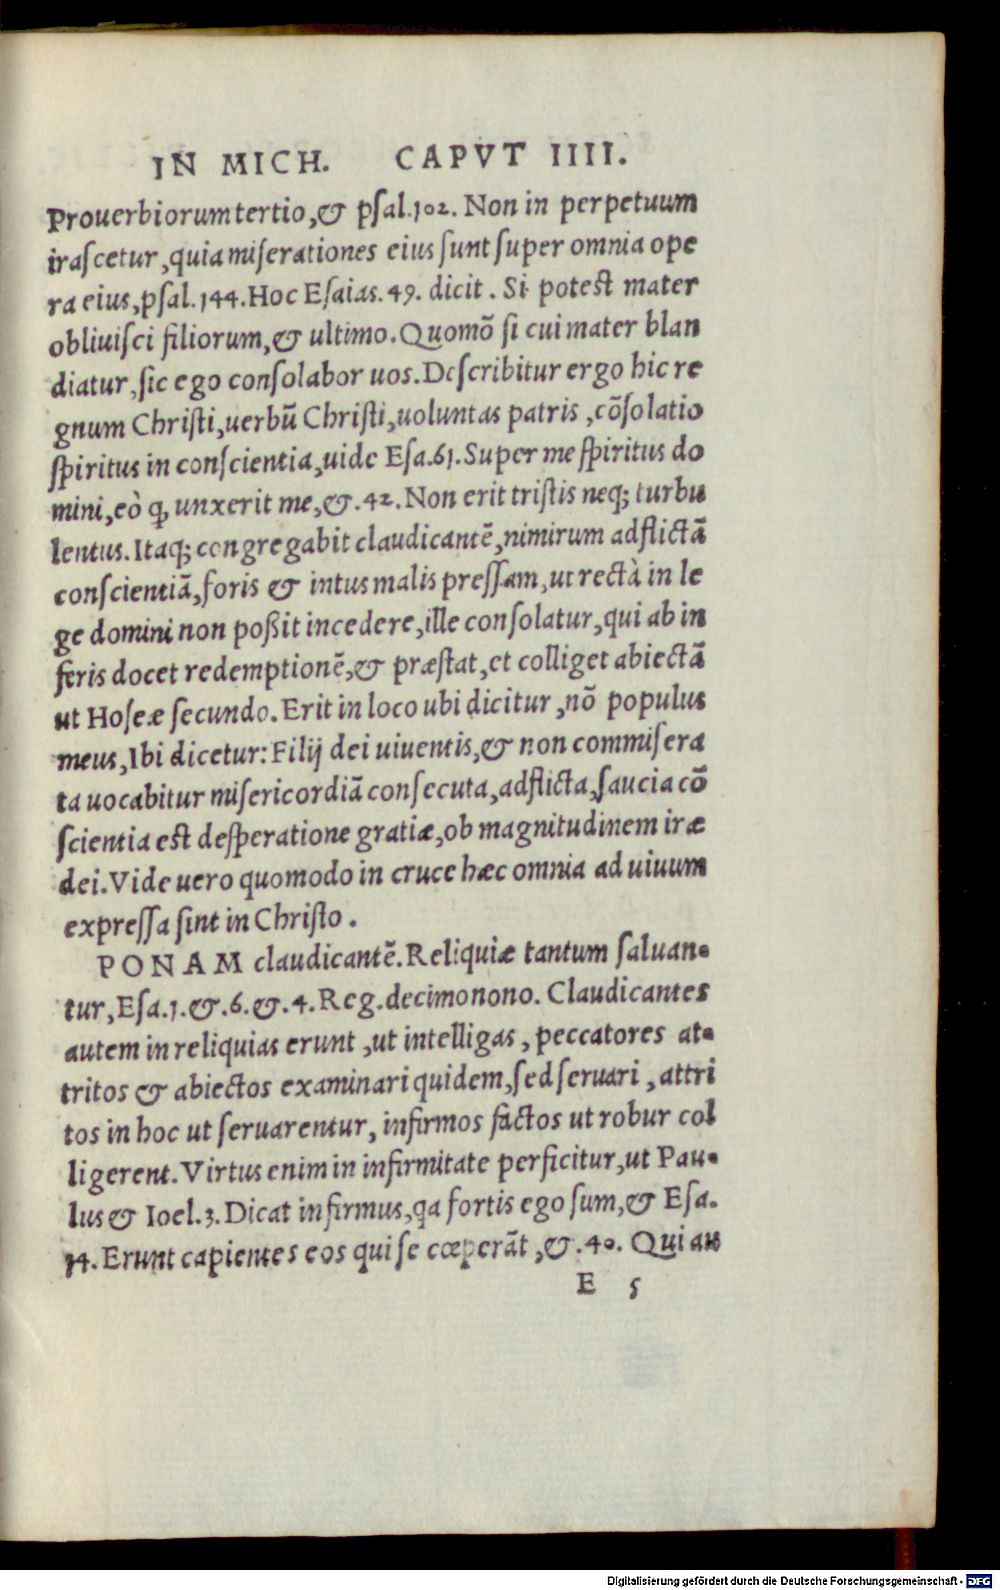 IN MICH. CAPVT IIII.
Prouerbiorum tertio, & pſal. 102. Non in perpetuum
iraſcetur, quia miſerationes eius ſunt ſuper omnia ope
ra eius, pſal. 144. Hoc Eſaias. 49. dicit. Si poteſt mater
obliuiſci filiorum, & ultimo. Quomõ ſi cui mater blan
diatur, ſic ego conſolabor uos. Deſcribitur ergo hic re
gnum Chriſti, uerbũ Chriſti, uoluntas patris, cõſolatio
ſpiritus in conſcientia, uide Eſa. 61. Super me ſpiritus do
mini, eò ꝙ unxerit me, &. 42. Non erit triſtis neq; turbu
lentus. Itaq; congregabit claudicantẽ, nimirum adflictã
conſcientiã, foris & intus malis preſſam, ut rectà in le
ge domini non poßit incedere, ille conſolatur, qui ab in
feris docet redemptionẽ, & præſtat, et colliget abiectã
ut Hoſeæ ſecundo. Erit in loco ubi dicitur, nõ populus
meus, Ibi dicetur: Filij dei uiuentis, & non commiſera
ta uocabitur miſericordiã conſecuta, adflicta, ſaucia cõ
ſcientia eſt deſperatione gratiæ, ob magnitudinem iræ
dei. Vide uero quomodo in cruce hæc omnia ad uiuum
expreſſa ſint in Chriſto.
PONAM claudicantẽ. Reliquiæ tantum ſaluan-
tur, Eſa. 1. &. 6. &. 4. Reg. decimonono. Claudicantes
autem in reliquias erunt, ut intelligas, peccatores at-
tritos & abiectos examinari quidem, ſed ſeruari, attri
tos in hoc ut ſeruarentur, infirmos factos ut robur col
ligerent. Virtus enim in infirmitate perficitur, ut Pau-
lus & Ioel. 3. Dicat infirmus, qa fortis ego ſum, & Eſa.
14. Erunt capientes eos qui ſe cœperãt, &. 40. Qui au
E 5
Digitalisierung gefördert durch die Deutsche Forschungsgemeinschaft - DFG